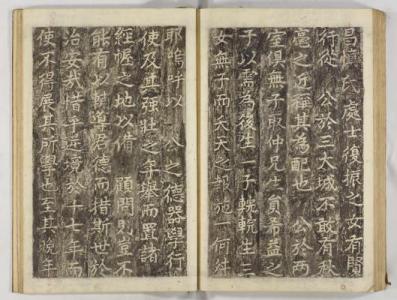 昌氏處士復振之女有賢
行從 公於三大城不敢有秋
毫之近其爲配也 公於兩
室俱無子取仲兄之員益之
子以需爲後生一子生三
女無子而夭天之報施一何舛
耶嗚呼以 公之德器學行
使及其强壯之年擧而置諸
經幄之地以備 顧問則豈不
能有以輔導君德而措斯世於
治安哉惜乎於十七年而
使不得展其所學也至其晚年